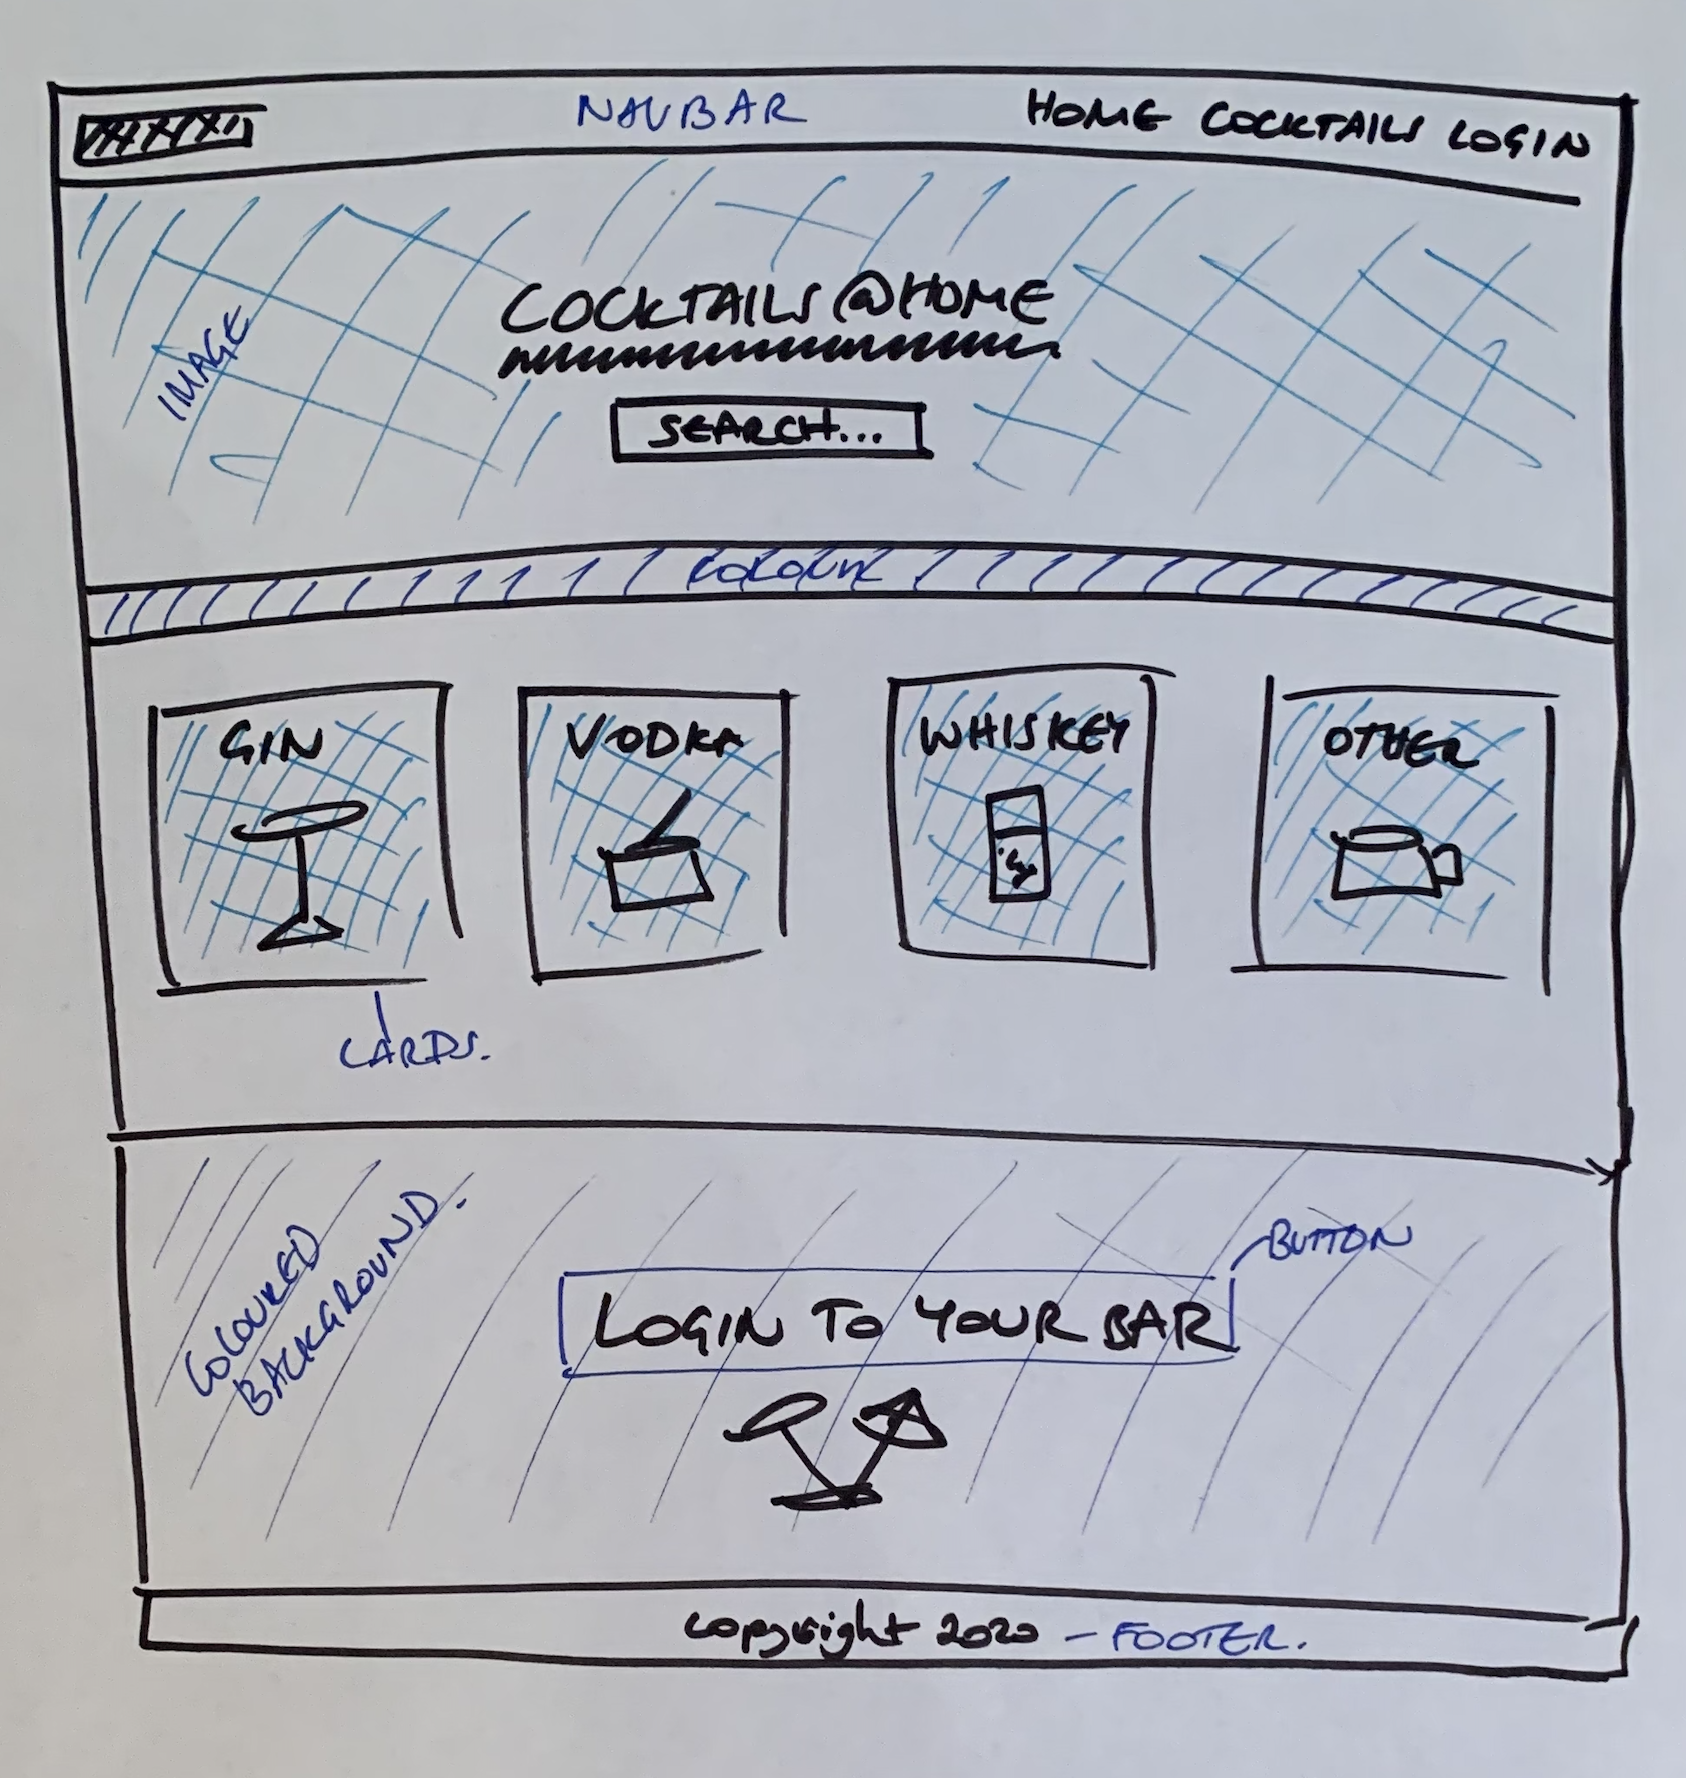 NAVBAR
HOME COCKTAILS LOGIN
COCKTAILS@HOME
IMAGE
SEARCH...
COLOUR
GIN
VODKA
WHISKEY
OTHER
CARDS.
COLOURED
BACKGROUND.
BUTTON
LOGIN TO YOUR BAR
copyright 2020 - FOOTER.